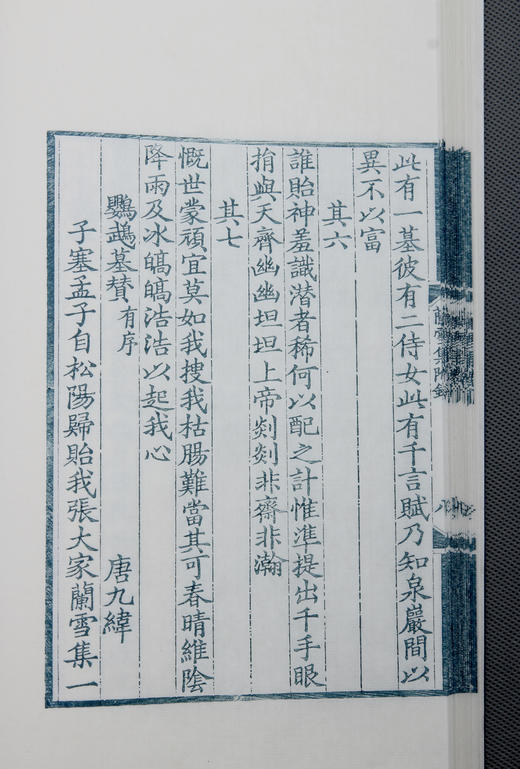 此有一墓彼有二侍女此有千言賦乃知泉巖間以
異不以富
其六
誰貽神羞識潛者稀何以配之計惟準提出千手眼
捎與天齊幽幽坦坦上帝剡剡非齋非瀚
其七
慨世蒙頑宜莫如我搜我枯腸難當其可春晴維陰
降雨及冰皜皜浩浩以起我心
鸚鵡墓贊有序
唐九緯
子塞孟子自松陽歸貽我張大家蘭雪集一
蘭雪集附錄